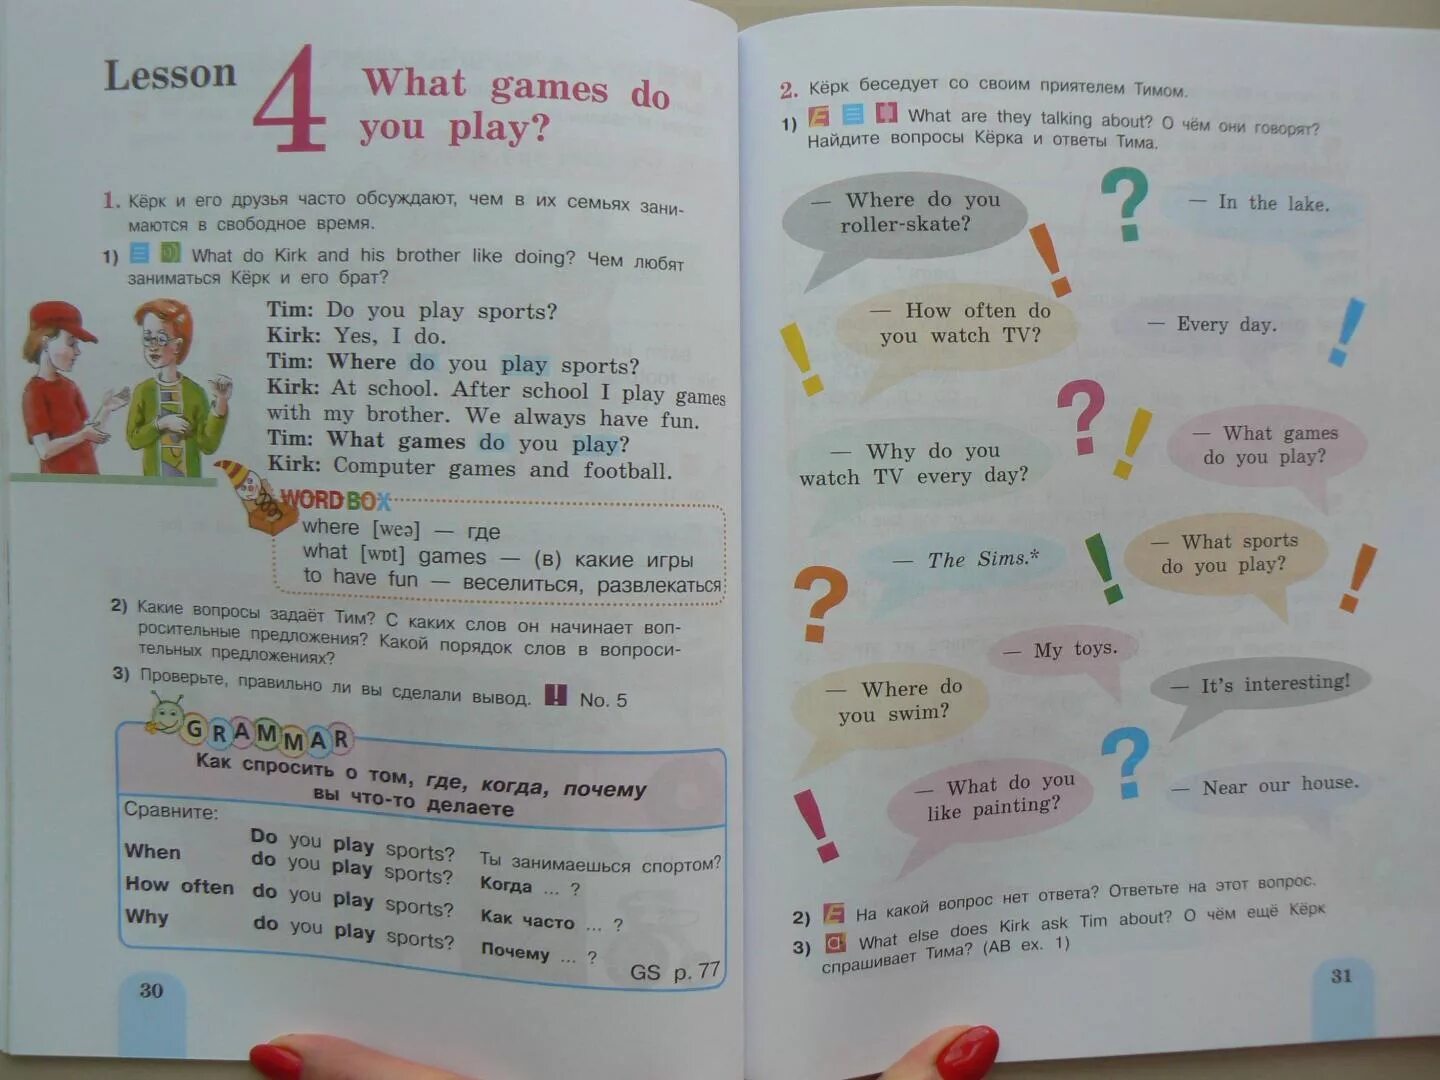 Lesson 4 What games do
you play?
1. Кёрк и его друзья часто обсуждают, чем в их семьях зани-
маются в свободное время.
1) What do Kirk and his brother like doing? Чем любят
заниматься Кёрк и его брат?
Tim: Do you play sports?
Kirk: Yes, I do.
Tim: Where do you play sports?
Kirk: At school. After school I play games
with my brother. We always have fun.
Tim: What games do you play?
Kirk: Computer games and football.
WORD BOX
where [weə] — где
what [wɒt] games — (в) какие игры
to have fun — веселиться, развлекаться
2) Какие вопросы задаёт Тим? С каких слов он начинает воп-
росительные предложения? Какой порядок слов в вопроси-
тельных предложениях?
3) Проверьте, правильно ли вы сделали вывод. ! No. 5
GRAMMAR
Как спросить о том, где, когда, почему
вы что-то делаете
Сравните:
Do you play sports? Ты занимаешься спортом?
When do you play sports? Когда ... ?
How often do you play sports? Как часто ... ?
Why do you play sports? Почему ... ?
GS p. 77
30
2. Кёрк беседует со своим приятелем Тимом.
1) E What are they talking about? О чём они говорят?
Найдите вопросы Кёрка и ответы Тима.
— Where do you
roller-skate?
?
— In the lake.
!
— How often do
you watch TV?
— Every day.
!
!
?
— Why do you
watch TV every day?
!
— What games
do you play?
— The Sims.*
!
— What sports
do you play?
!
?
— My toys.
— Where do
you swim?
— It's interesting!
?
— What do you
like painting?
— Near our house.
!
2) E На какой вопрос нет ответа? Ответьте на этот вопрос.
3) a What else does Kirk ask Tim about? О чём ещё Кёрк
спрашивает Тима? (AB ex. 1)
31